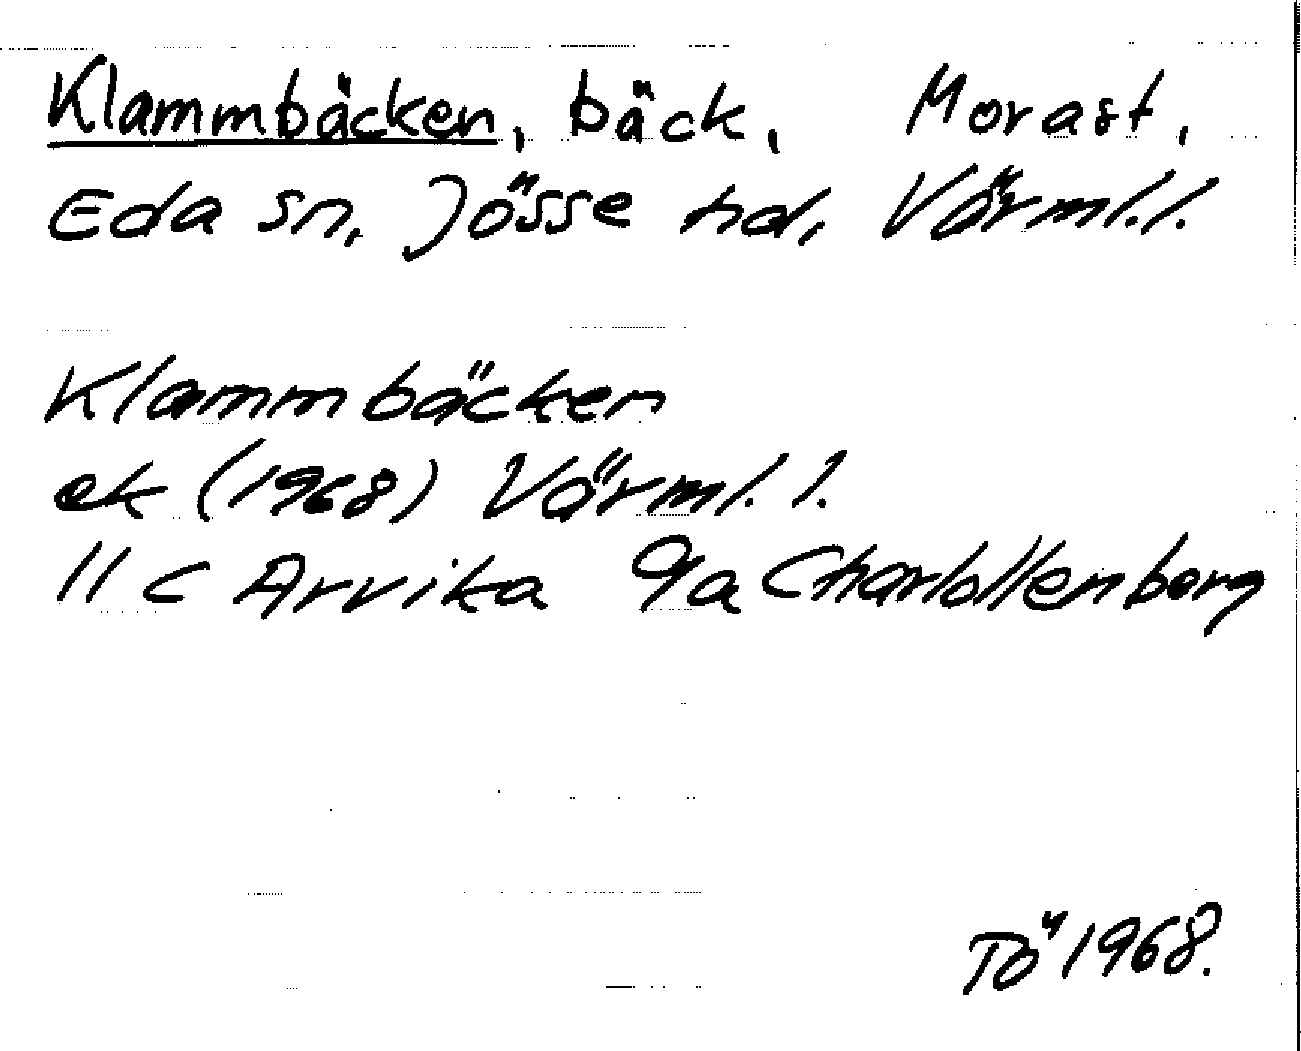 Klammbäcken, bäck, Morast,
Eda sn, Jösse hd, Värml.l.
Klammbäcken
ek (1968) Värml. l.
11 c Arvika 9a Charlottenberg
Tö 1968.